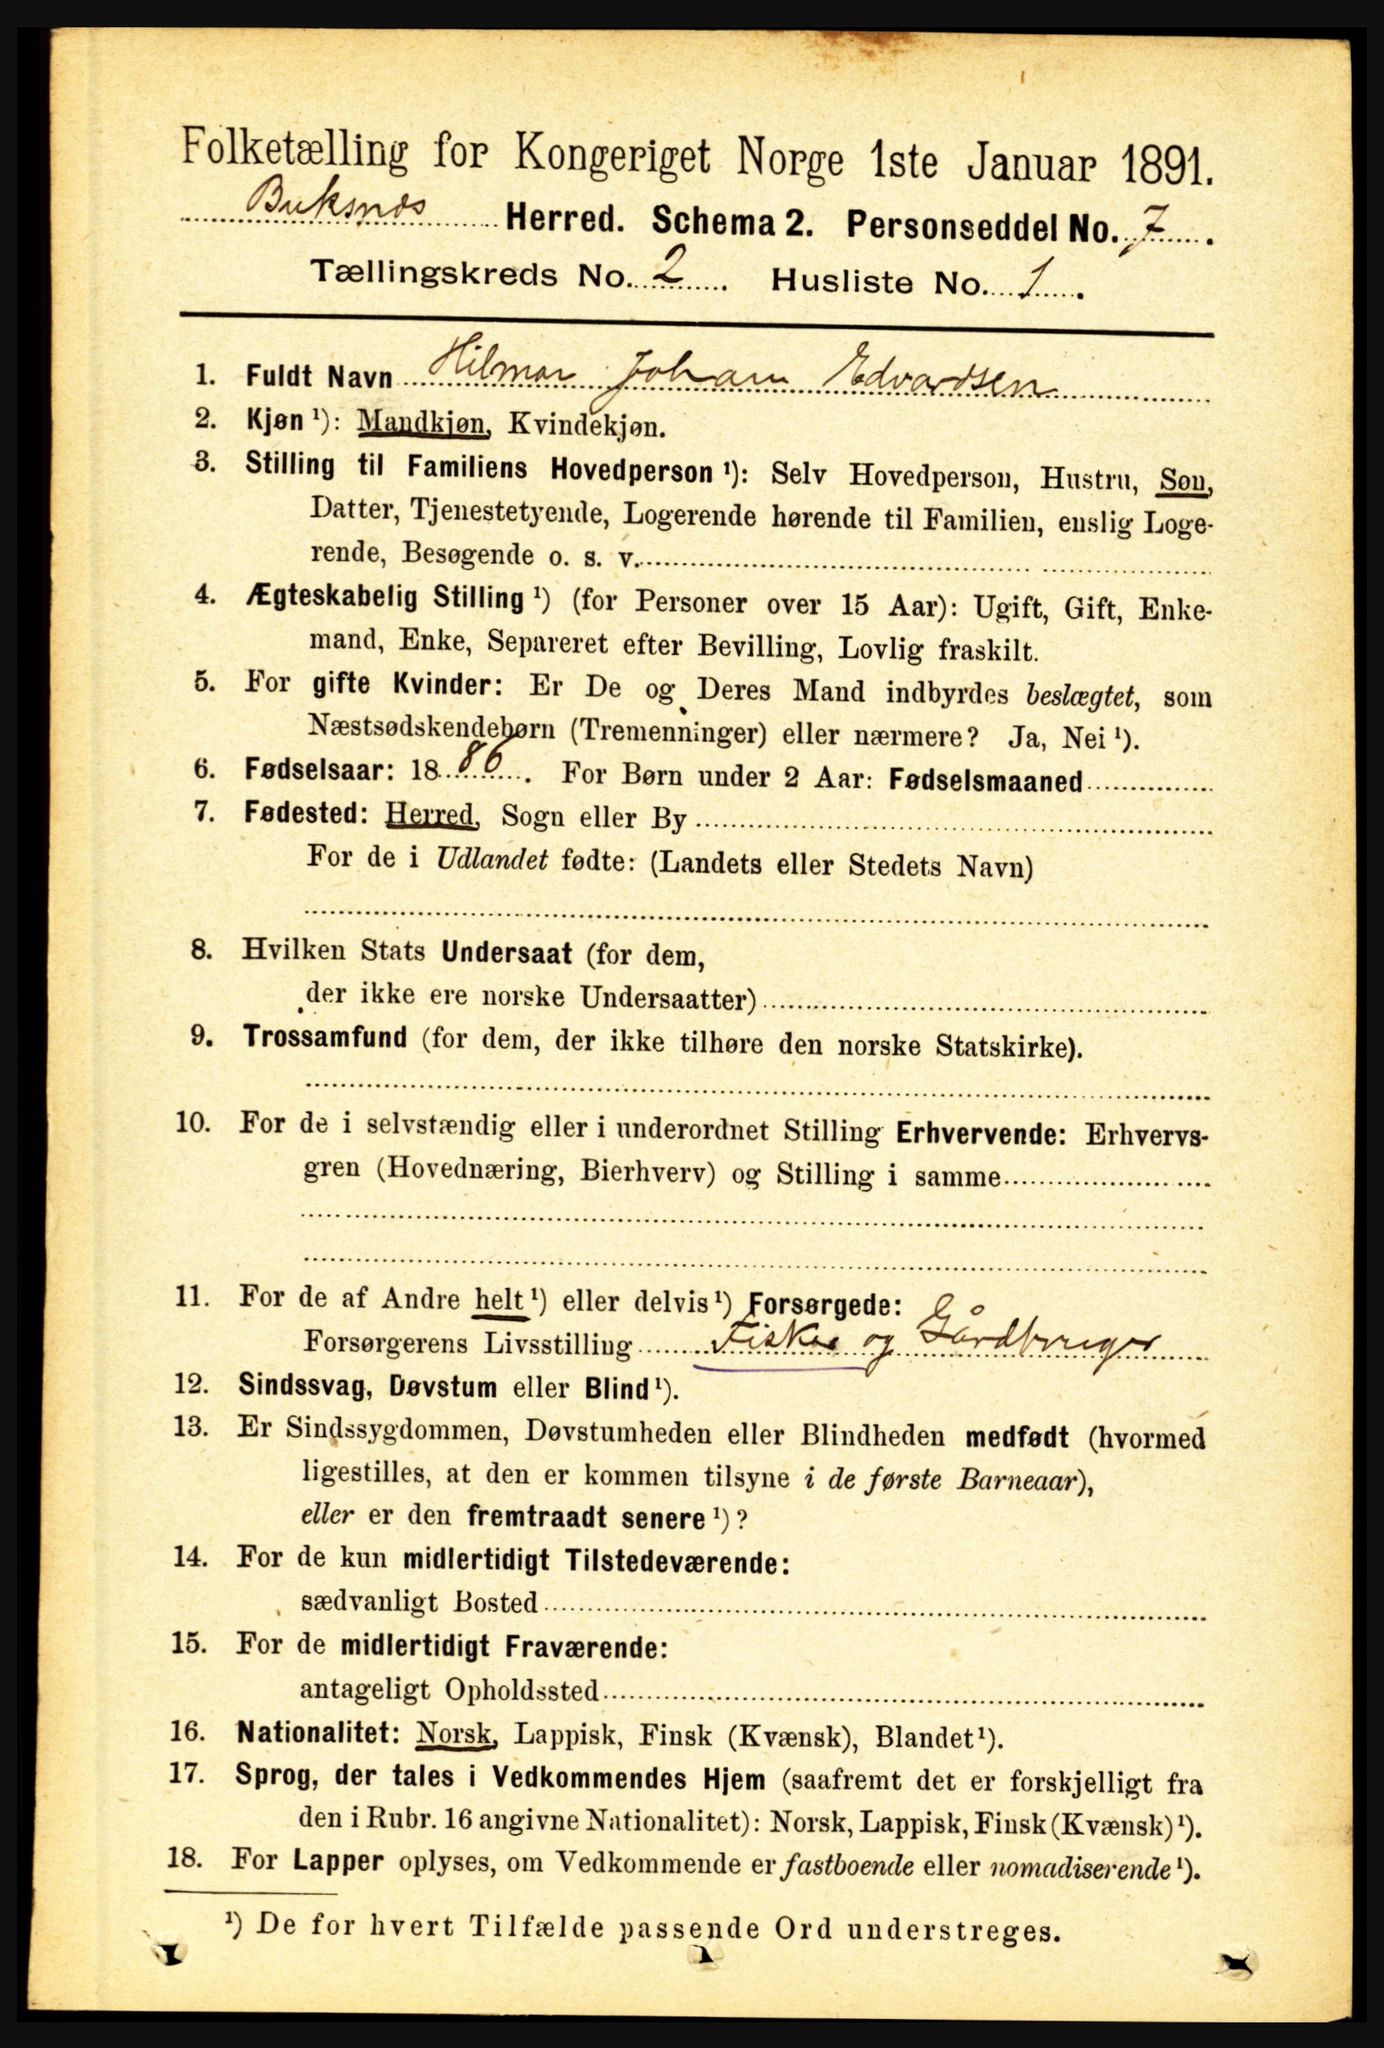 Folketælling for Kongeriget Norge 1ste Januar 1891.
Buksnes Herred. Schema 2. Personseddel No. 7.
Tællingskreds No. 2. Husliste No. 1.
1. Fuldt Navn Hilmar Johan Edvardsen
2. Kjøn ¹): Mandkjøn, Kvindekjøn.
3. Stilling til Familiens Hovedperson ¹): Selv Hovedperson, Hustru, Søn,
Datter, Tjenestetyende, Logerende hørende til Familien, enslig Loge-
rende, Besøgende o. s. v.
4. Ægteskabelig Stilling ¹) (for Personer over 15 Aar): Ugift, Gift, Enke-
mand, Enke, Separeret efter Bevilling, Lovlig fraskilt.
5. For gifte Kvinder: Er De og Deres Mand indbyrdes beslægtet, som
Næstsødskendebørn (Tremenninger) eller nærmere? Ja, Nei ¹).
6. Fødselsaar: 1886. For Børn under 2 Aar: Fødselsmaaned
7. Fødested: Herred, Sogn eller By
For de i Udlandet fødte: (Landets eller Stedets Navn)
8. Hvilken Stats Undersaat (for dem,
der ikke ere norske Undersaatter)
9. Trossamfund (for dem, der ikke tilhøre den norske Statskirke).
10. For de i selvstændig eller i underordnet Stilling Erhvervende: Erhvervs-
gren (Hovednæring, Bierhverv) og Stilling i samme
11. For de af Andre helt ¹) eller delvis ¹) Forsørgede:
Forsørgerens Livsstilling Fisker og Gårdbruger
12. Sindssvag, Døvstum eller Blind ¹).
13. Er Sindssygdommen, Døvstumheden eller Blindheden medfødt (hvormed
ligestilles, at den er kommen tilsyne i de første Barneaar),
eller er den fremtraadt senere ¹)?
14. For de kun midlertidigt Tilstedeværende:
sædvanligt Bosted
15. For de midlertidigt Fraværende:
antageligt Opholdssted
16. Nationalitet: Norsk, Lappisk, Finsk (Kvænsk), Blandet ¹).
17. Sprog, der tales i Vedkommendes Hjem (saafremt det er forskjelligt fra
den i Rubr. 16 angivne Nationalitet): Norsk, Lappisk, Finsk (Kvænsk) ¹).
18. For Lapper oplyses, om Vedkommende er fastboende eller nomadiserende ¹).
¹) De for hvert Tilfælde passende Ord understreges.